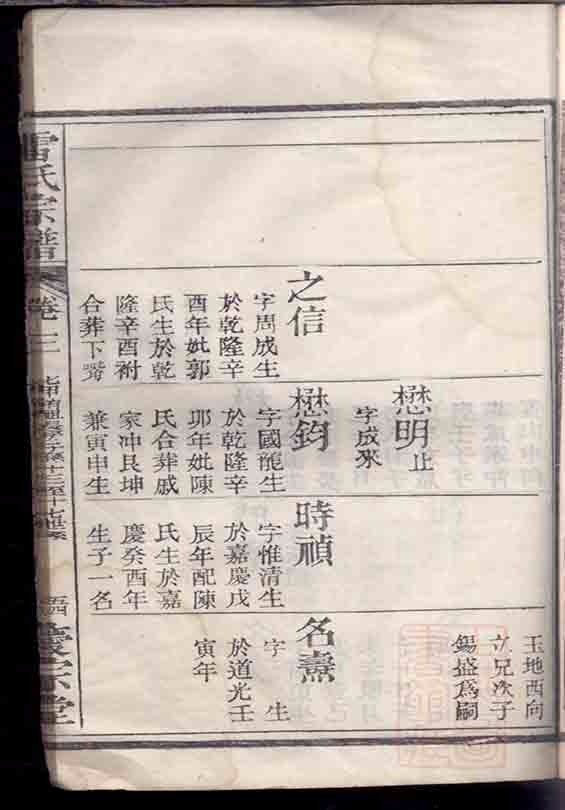 玉地西向
立兄次子
錫盛爲嗣
之信
字周成生
於乾隆辛
酉年妣郭
氏生於乾
隆辛酉祔
合葬下
懋明止
字成來
懋鈞
字國龍生
於乾隆辛
卯年妣陳
氏合葬戚
家冲艮坤
兼寅申生
時禎
字惟清生
於嘉慶戊
辰年配陳
氏生於嘉
慶癸酉年
生子一名
名燾
字 生
於道光壬
寅年
雷氏宗譜
卷